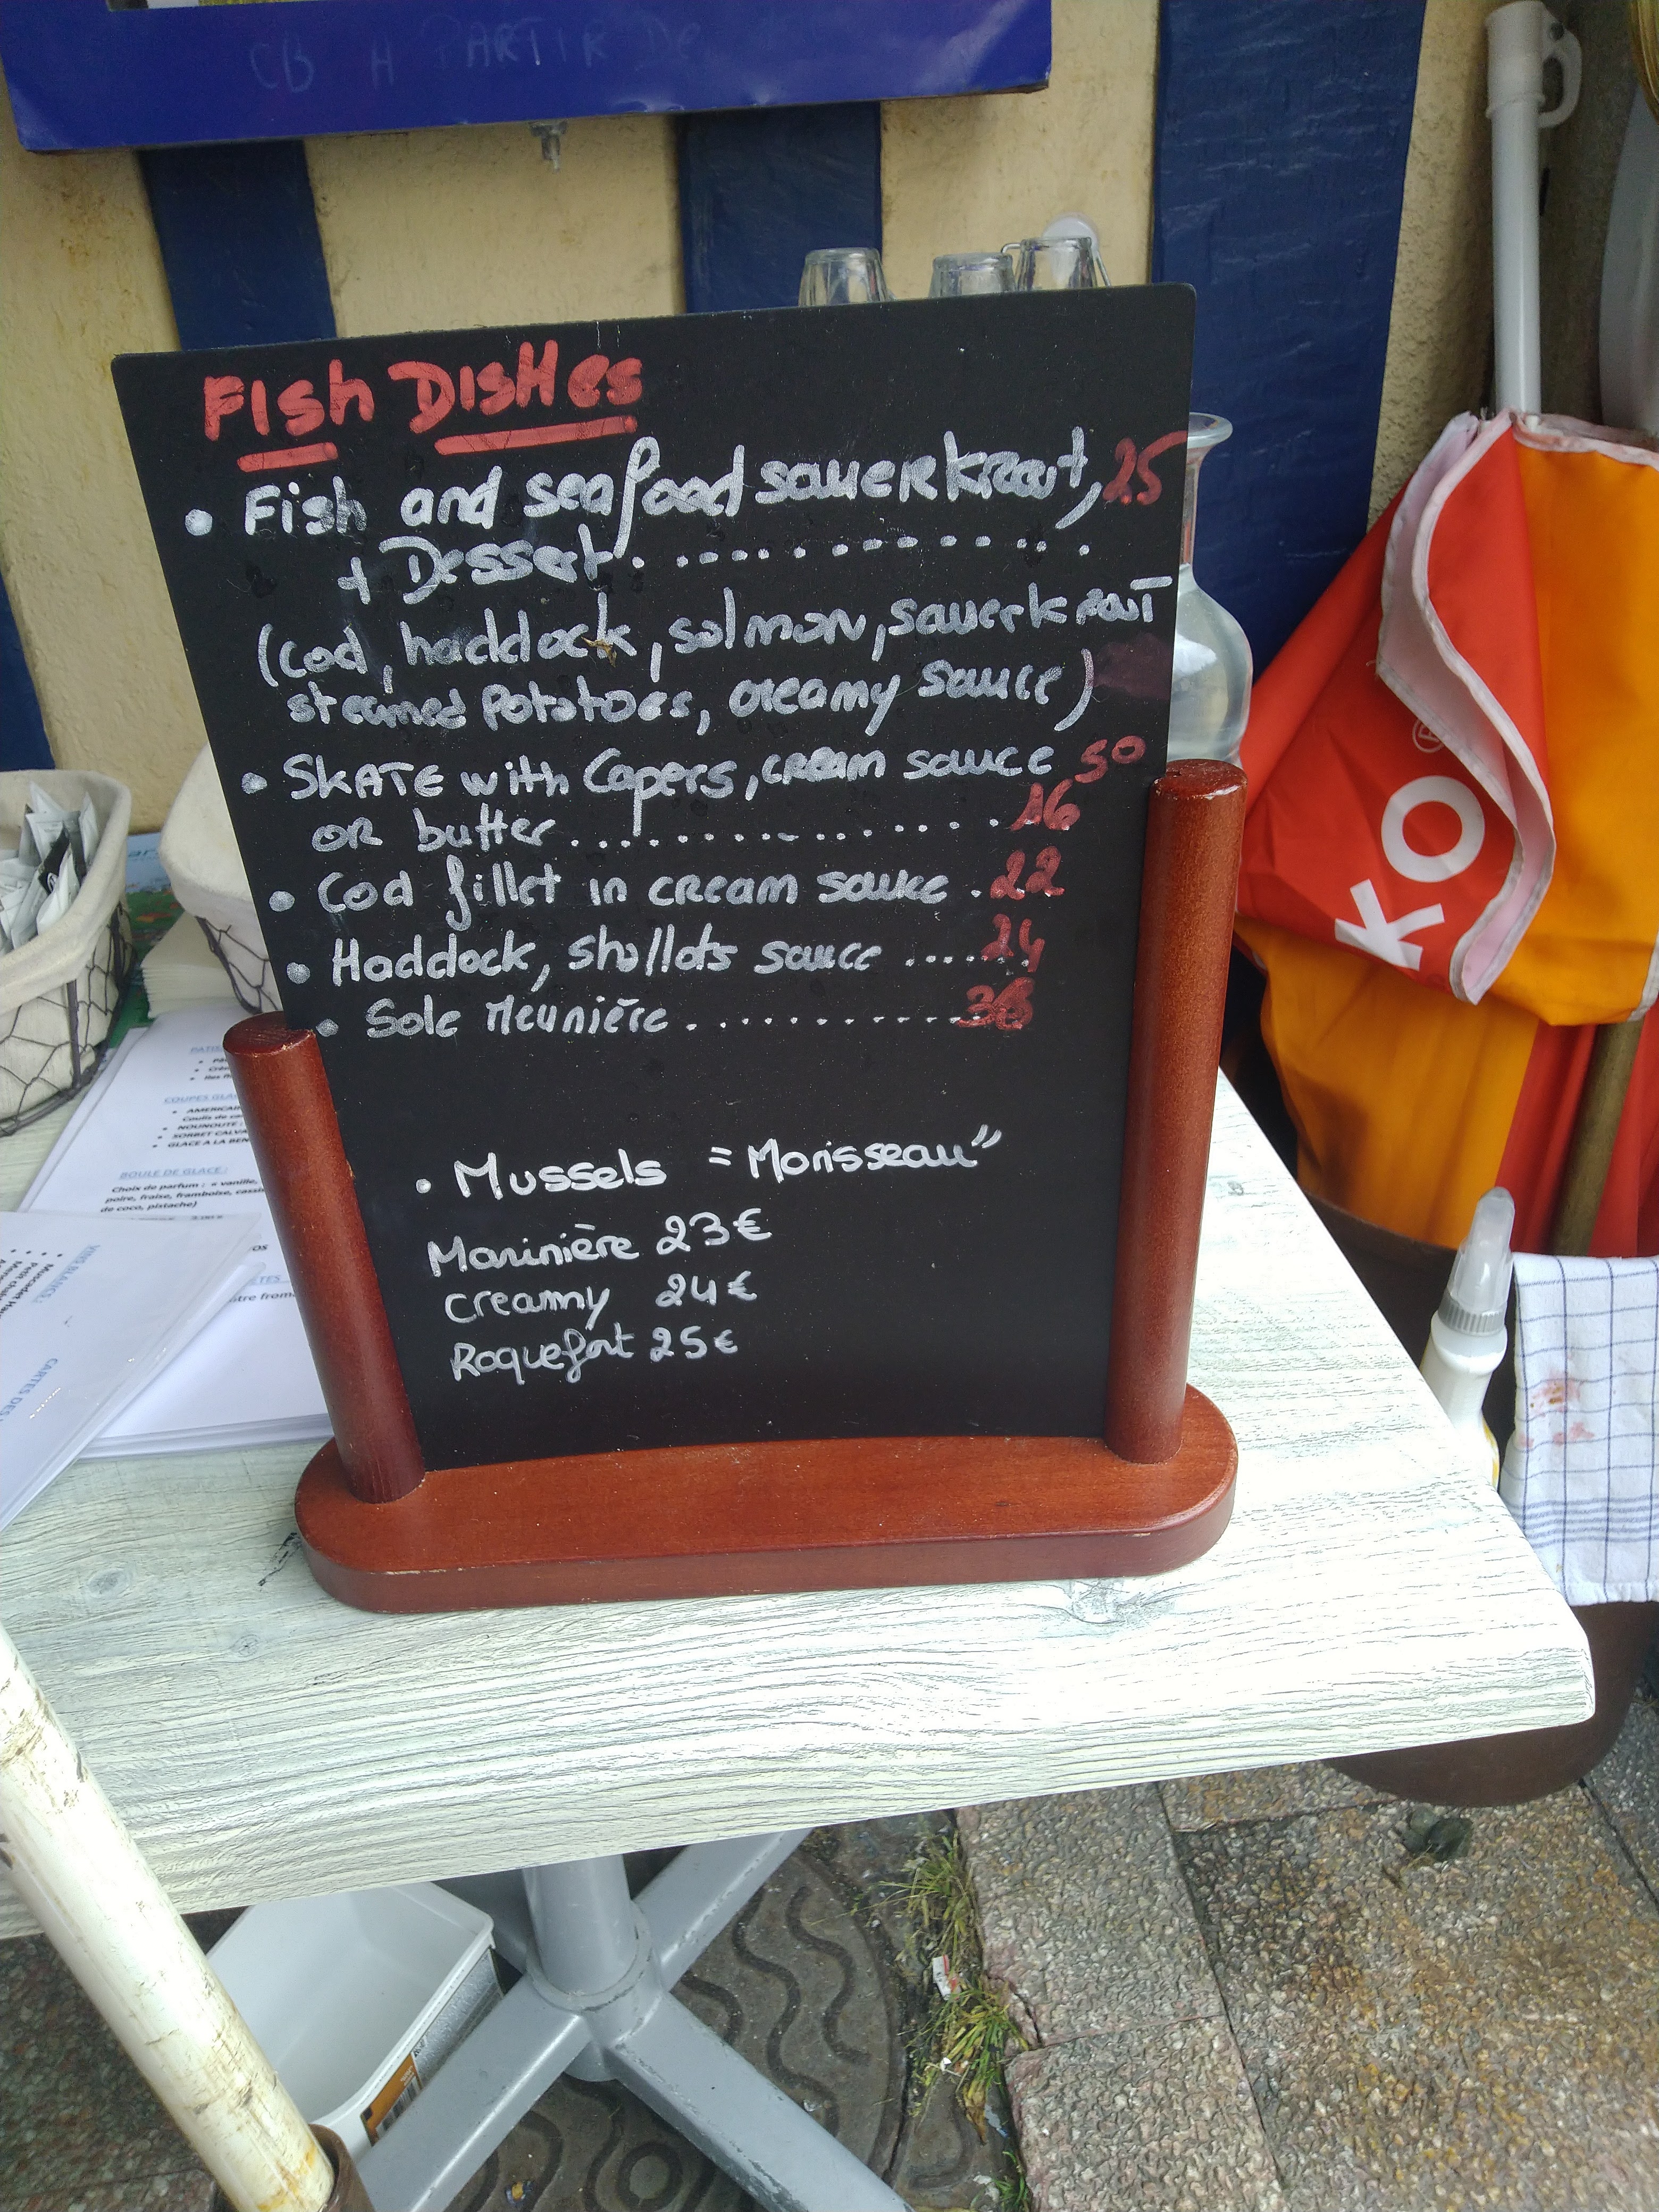 CB A PARTIR DE
FISh DISHes
• Fish and seafood sauerkraut, 25
+ Dessert..............
(Cod, haddock, salmon, sauerkraut
steamed Potatoes, creamy sauce)
• SKATE with Capers, cream sauce 50
OR butter................ 16
• Cod fillet in cream sauce . 22
• Haddock, shallots sauce ...... 24
• Sole Meunière............ 36
• Mussels "Morisseau"
Marinière 23€
Creamy 24€
Roquefort 25€
KO
®
COUPES GLA
• AMERICAI
Coulis de ca
• NOUNOUTE :
• SORBET CALVA
• GLACE A LA BEN
BOULE DE GLACE :
Choix de parfum : « vanille,
poire, fraise, framboise, cassi
de coco, pistache)
VINS BLANCS :
CARTES DES